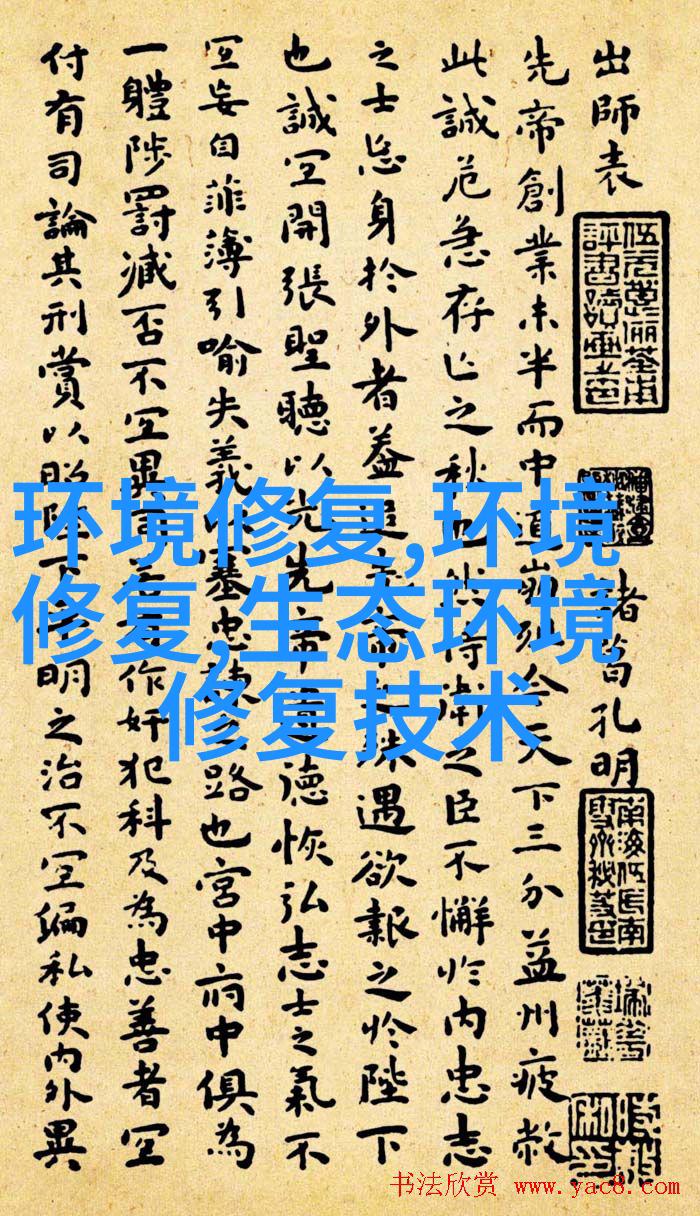 出師表
諸葛孔明
先帝創業未半而中道崩殂今天下三分益州疲敝
此誠危急存亡之秋也然侍衛之臣不懈於内忠志
之士忘身於外者蓋追先帝之殊遇欲報之於陛下
也誠宜開張聖聽以光先帝遺德恢弘志士之氣不
宜妄自菲薄引喻失義以塞忠諫之路也宮中府中俱為
一體陟罰臧否不宜異同若有作奸犯科及為忠善者宜
付有司論其刑賞以昭陛下平明之治不宜偏私使内外異
环境修复,环境
修复,生态环境
修复技术
书法欣赏 www.yac8.com